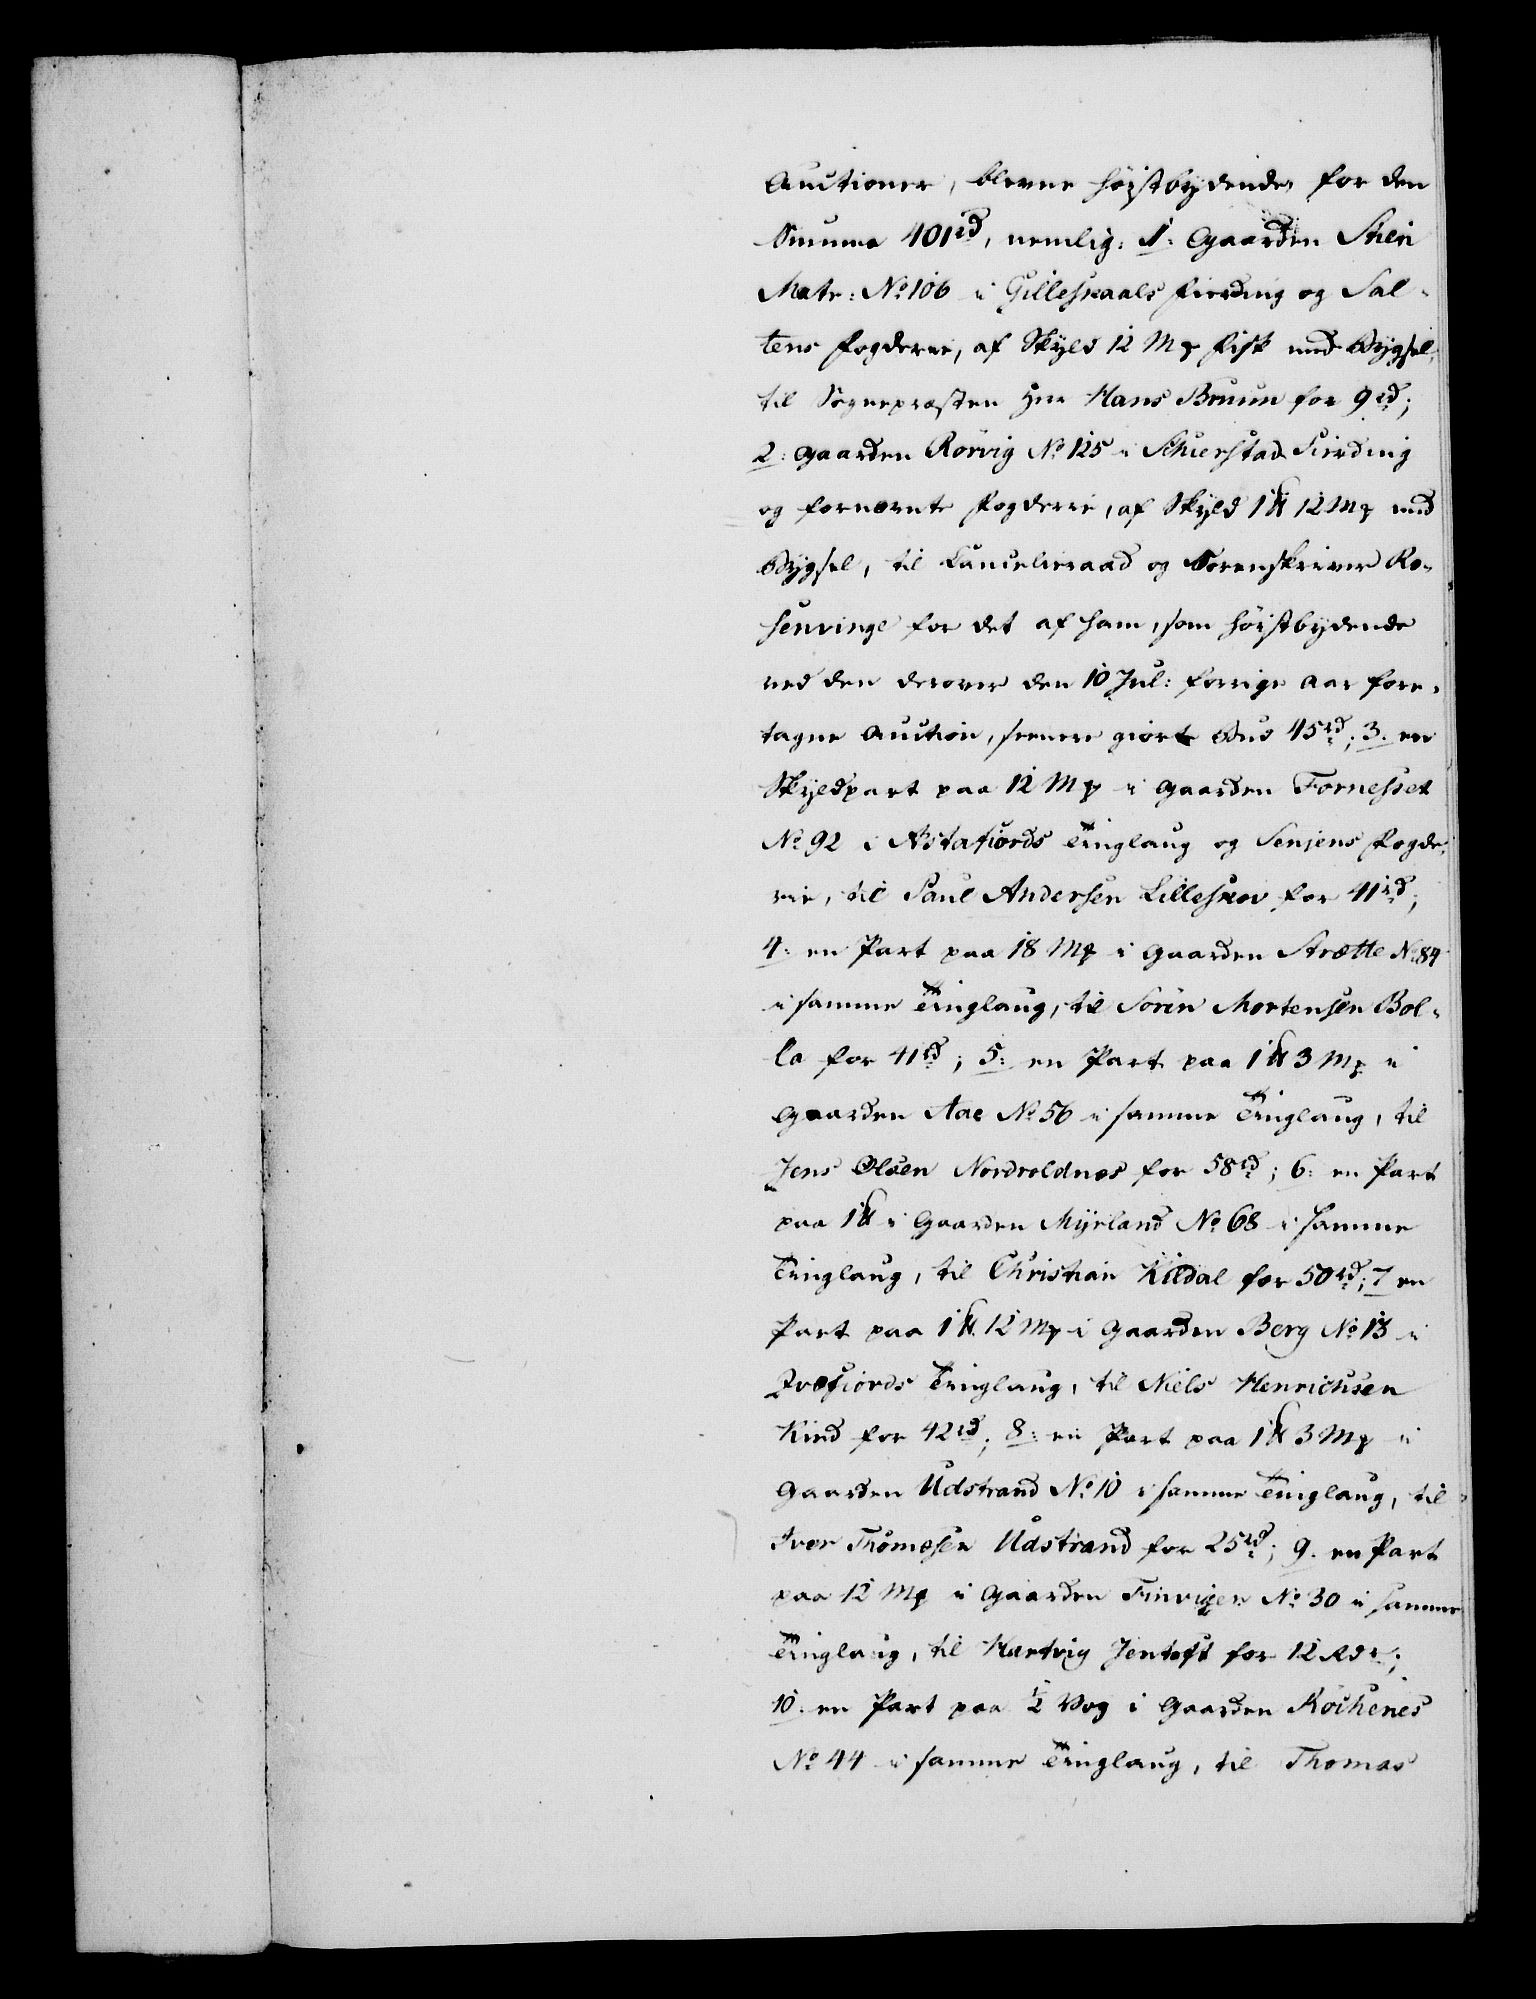 Auctioner, blevne høistbydende for den
Summa 401 rd, nemlig: 1: Gaarden Stein
Matr: No 106 i Gilleskaals Fierding og Sal-
tens Fogderie, af Skyld 12 Mk Fisk med Bygsel,
til Sognepræsten Her Hans Bruun for 9 rd;
2: Gaarden Rørvig No 125 i Schierstad Fierding
og fornævnte Fogderie, af Skyld 1 pd 12 Mk med
Bygsel, til Cancelieraad og Sorenskriver Ro-
senvinge for det af ham, som høistbydende
ved den derover den 10 Jul: forrige Aar fore-
tagne Auction, seenere giorte Bud 45 rd; 3. en
Skyldpart paa 12 Mk i Gaarden Fornesset
No 92 i Astafiords Tinglaug og Senjens Fogde-
rie, til Paul Andersen Lilleskov for 41 rd;
4: en Part paa 18 Mk i Gaarden Strætte No 84
i samme Tinglaug, til Søren Mortensen Bol-
la for 41 rd; 5: en Part paa 1 pd 3 Mk i
Gaarden Aae No 56 i samme Tinglaug, til
Jens Olsen Nordroldnes for 58 rd; 6: en Part
paa 1 pd i Gaarden Myrland No 68 i samme
Tinglaug, til Christian Kildal for 50 rd; 7 en
Part paa 1 pd 12 Mk i Gaarden Berg No 13 i
Qvæfiords Tinglaug, til Niels Henrichsen
Kind for 42 rd; 8: en Part paa 1 pd 3 Mk i
Gaarden Udstrand No 10 i samme Tinglaug, til
Iver Thomesen Udstrand for 25 rd; 9. en Part
paa 12 Mk i Gaarden Finvigen No 30 i samme
Tinglaug, til Hartvig Jentoft for 12 Rdr;
10. en Part paa 1/2 Vog i Gaarden Rochenes
No 44 i samme Tinglaug, til Thomas